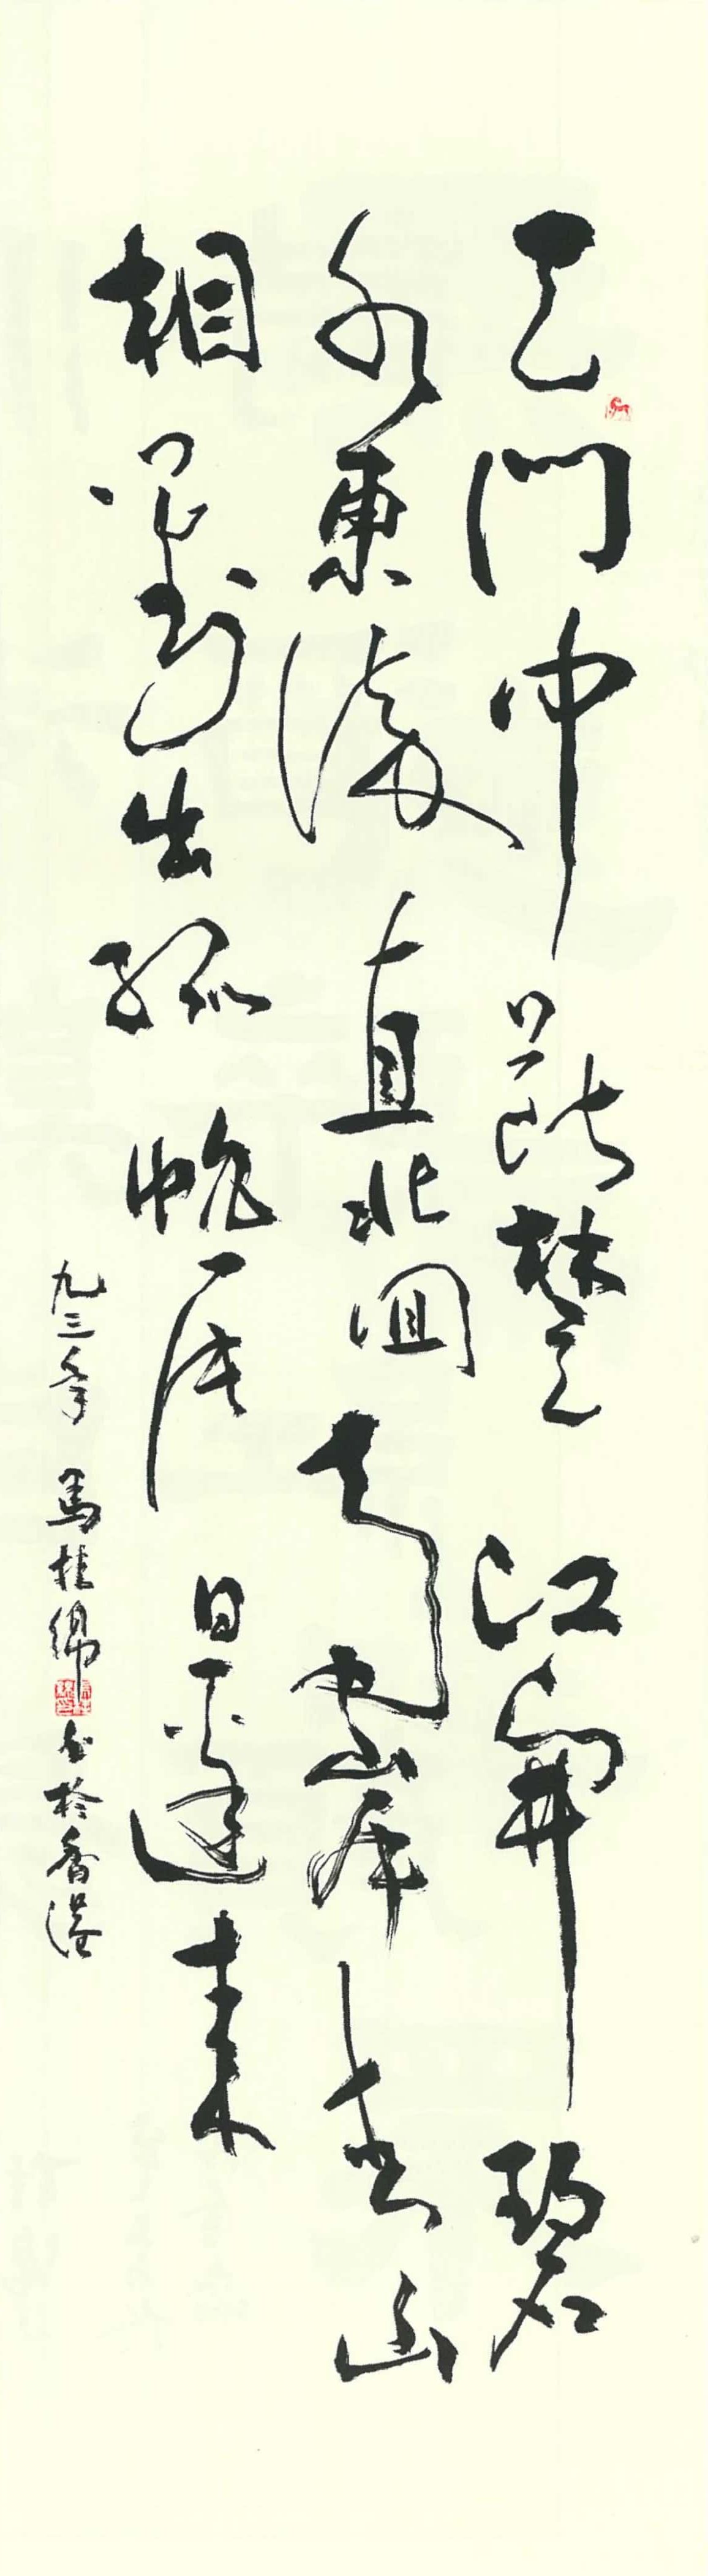 天門中斷楚江開碧
水東流直北迴兩岸青山
相對出孤帆一片日邊來
九三年 馬桂綿 書於香港